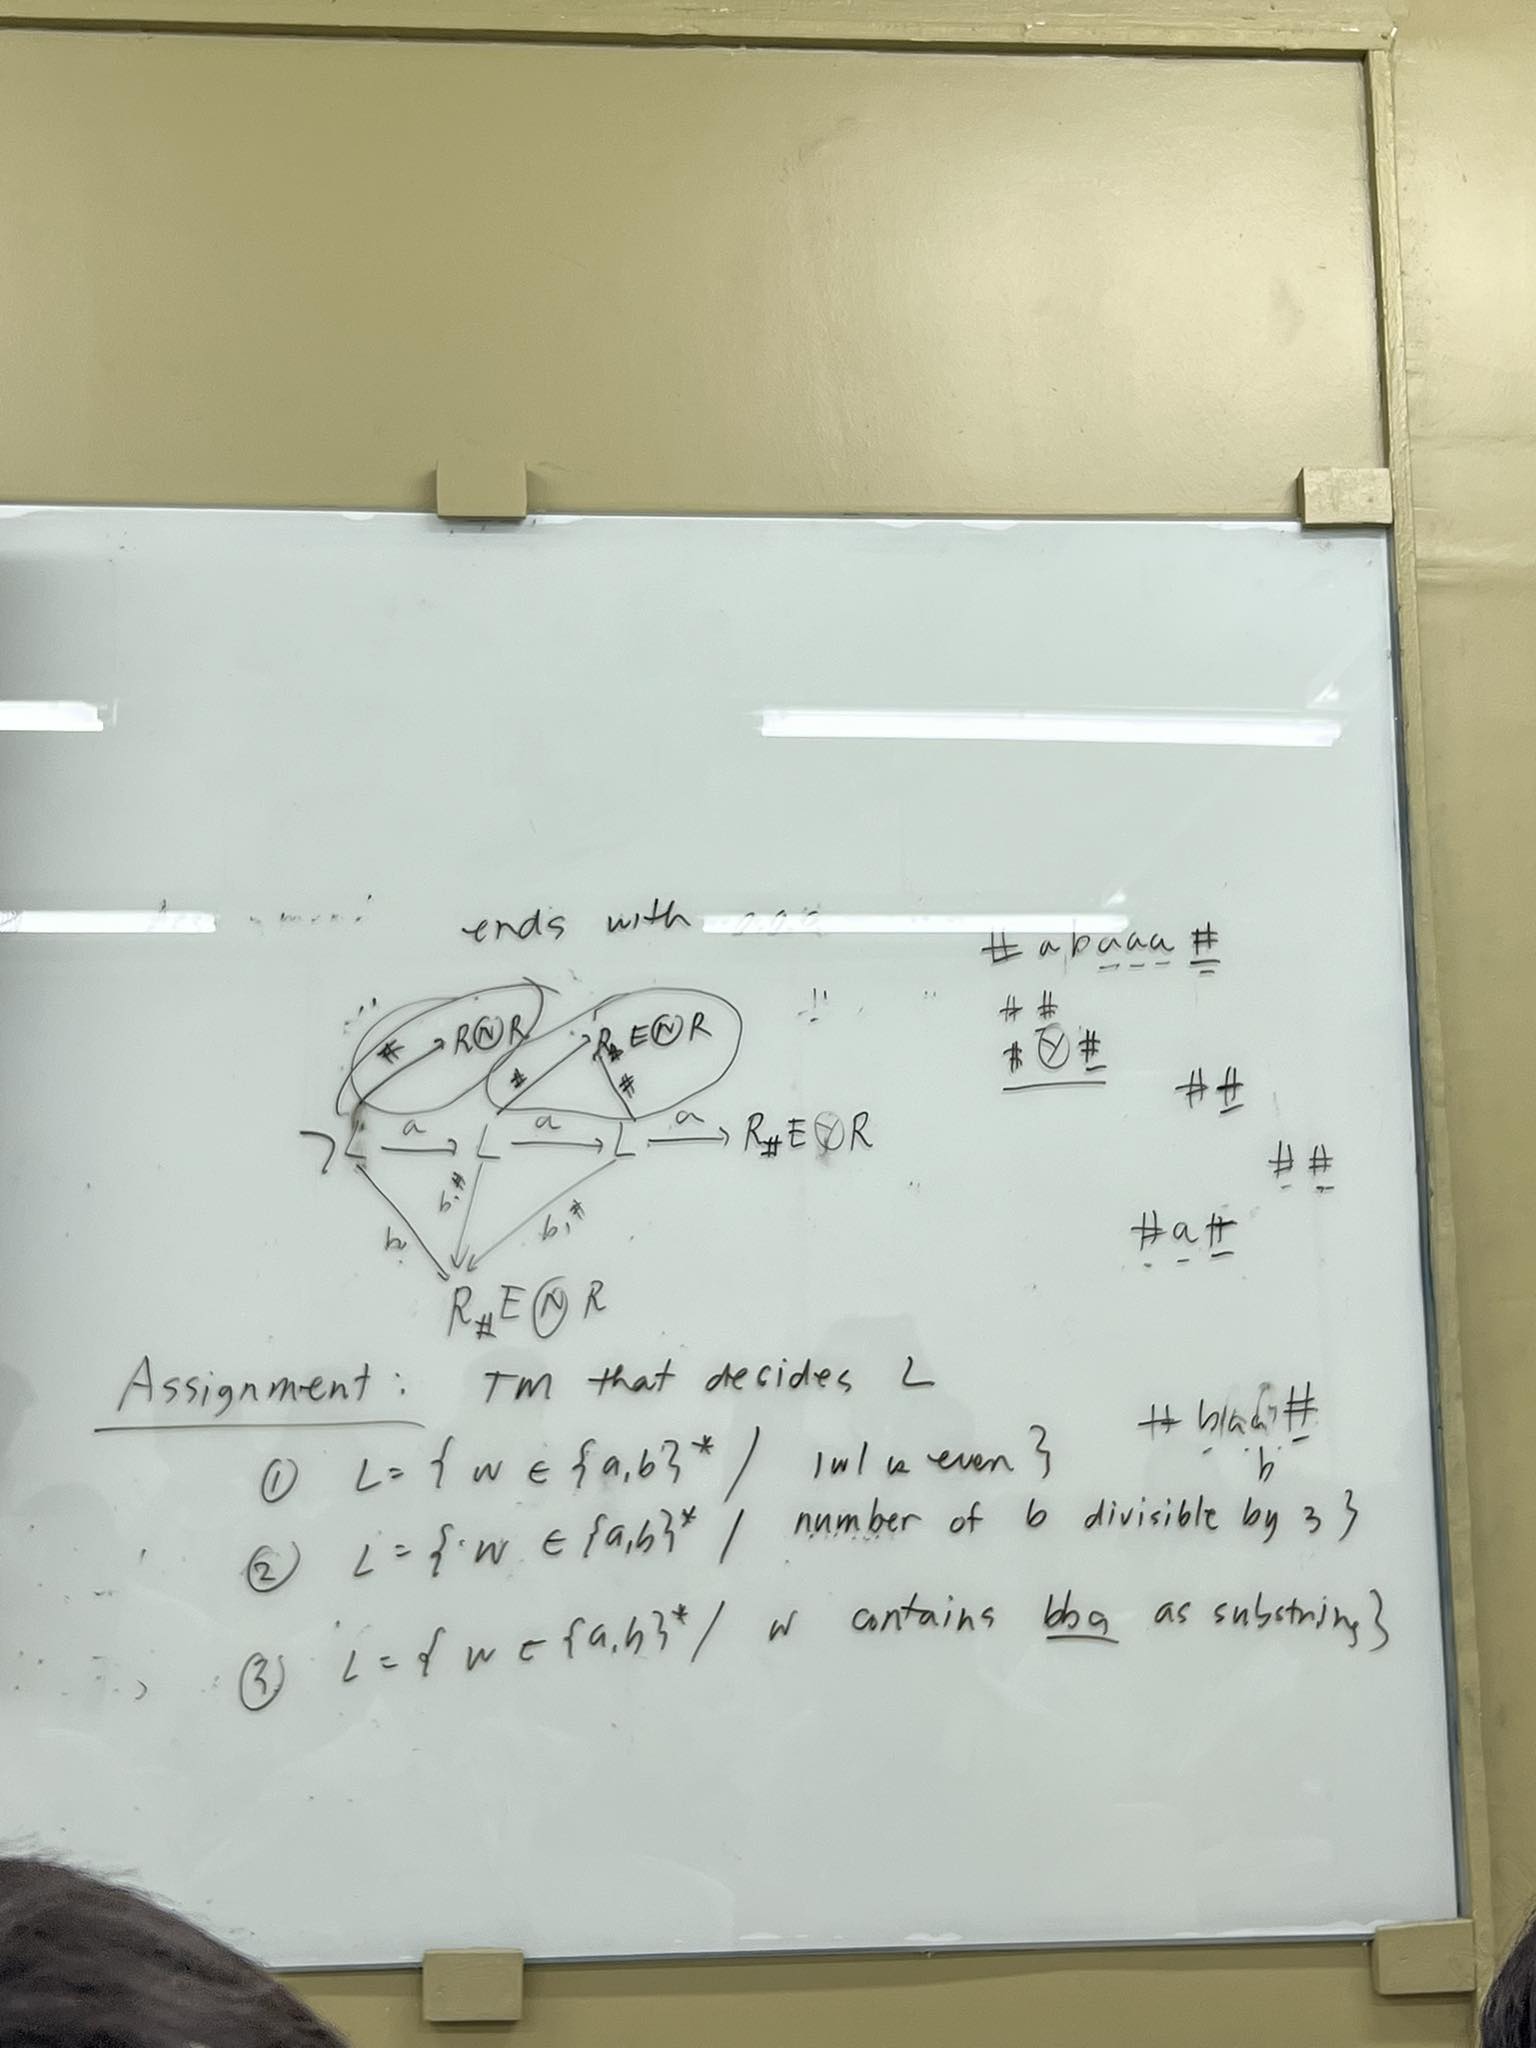 ends with
# a b a a a #
# #
# Ⓨ #
# #
# #
# a #
# R Ⓝ R
# R# E Ⓝ R
#
> L a L a L a R# E Ⓨ R
b b,# b,#
R# E Ⓝ R
Assignment: TM that decides L
① L = { w ∈ {a,b}* / |w| is even }
② L = { w ∈ {a,b}* / number of b divisible by 3 }
③ L = { w ∈ {a,b}* / w contains bba as substring }
b